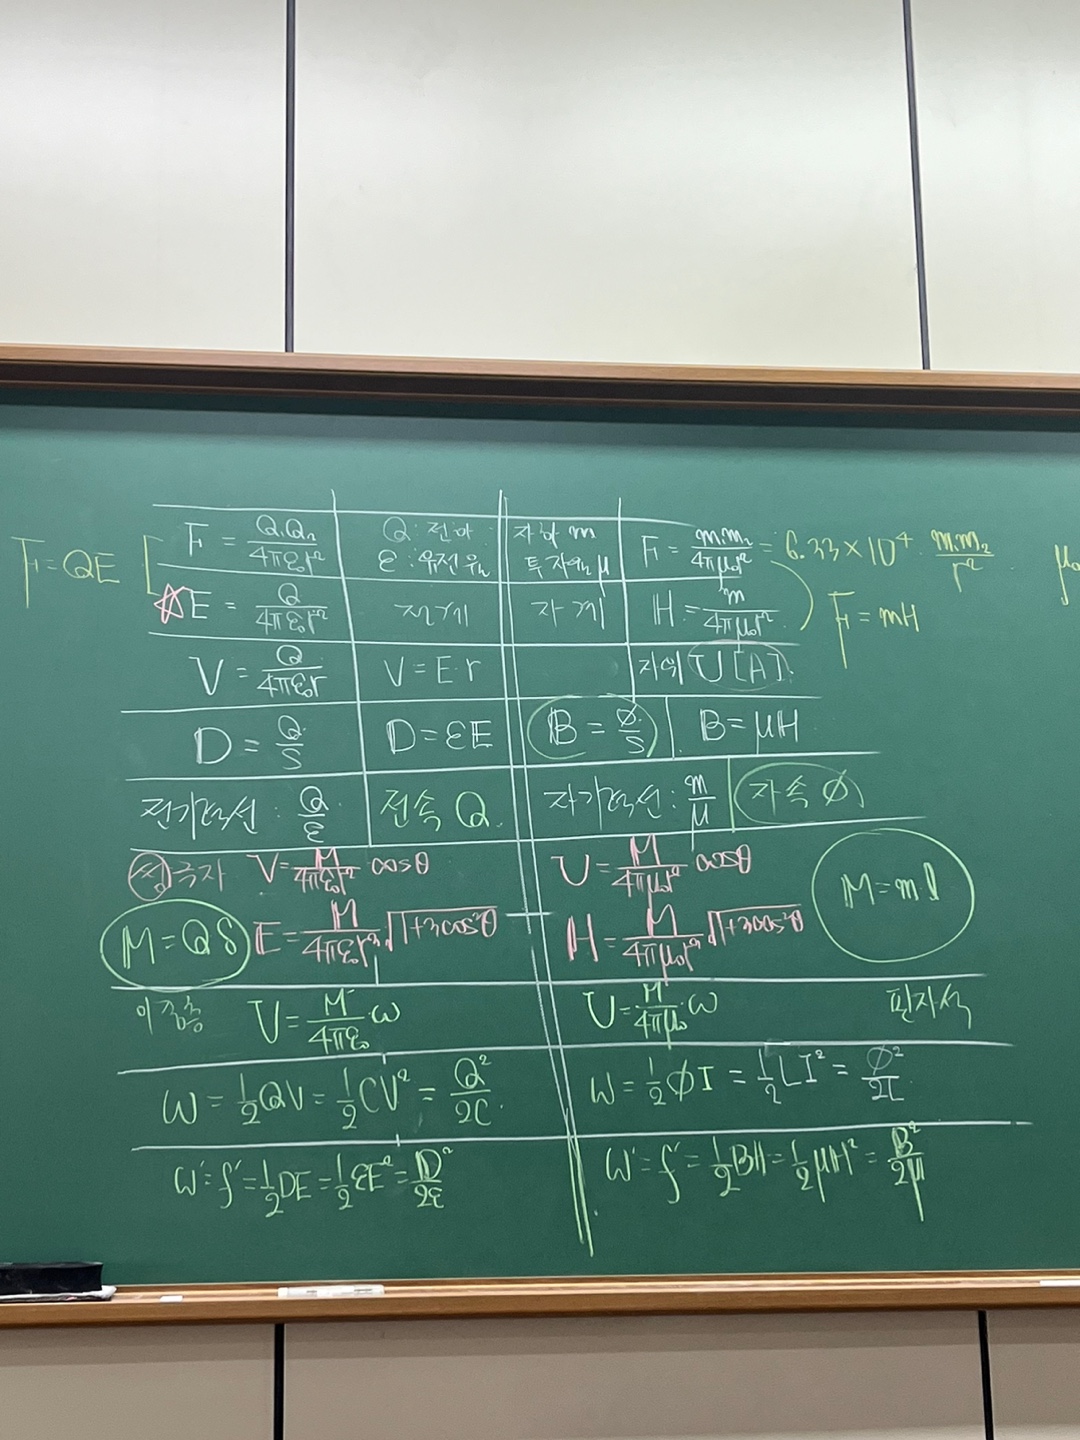 F = Q₁Q₂/4πε₀r² Q : 전하 자하 m F = m₁m₂/4πμ₀r² = 6.33×10⁴ · m₁m₂/r²
F=QE [ ε : 유전율 투자율 μ
☆E = Q/4πε₀r² 전계 자계 H = m/4πμ₀r² F = mH
V = Q/4πε₀r V = E·r 자위 U [A]
D = Q/S D = εE B = ø/S B = μH
전기력선 : Q/ε 전속 Q 자기력선 : m/μ 자속 ø
쌍극자 V = M/4πε₀r² cosθ U = M/4πμ₀r² cosθ M = ml
M = Qδ E = M/4πε₀r³ √1+3cos²θ H = M/4πμ₀r³ √1+3cos²θ
이중층 V = M/4πε₀ · ω U = M/4πμ₀ · ω 판자석
W = ½QV = ½CV² = Q²/2C W = ½øI = ½LI² = ø²/2L
W' = f' = ½DE = ½εE² = D²/2ε W' = f' = ½BH = ½μH² = B²/2μ